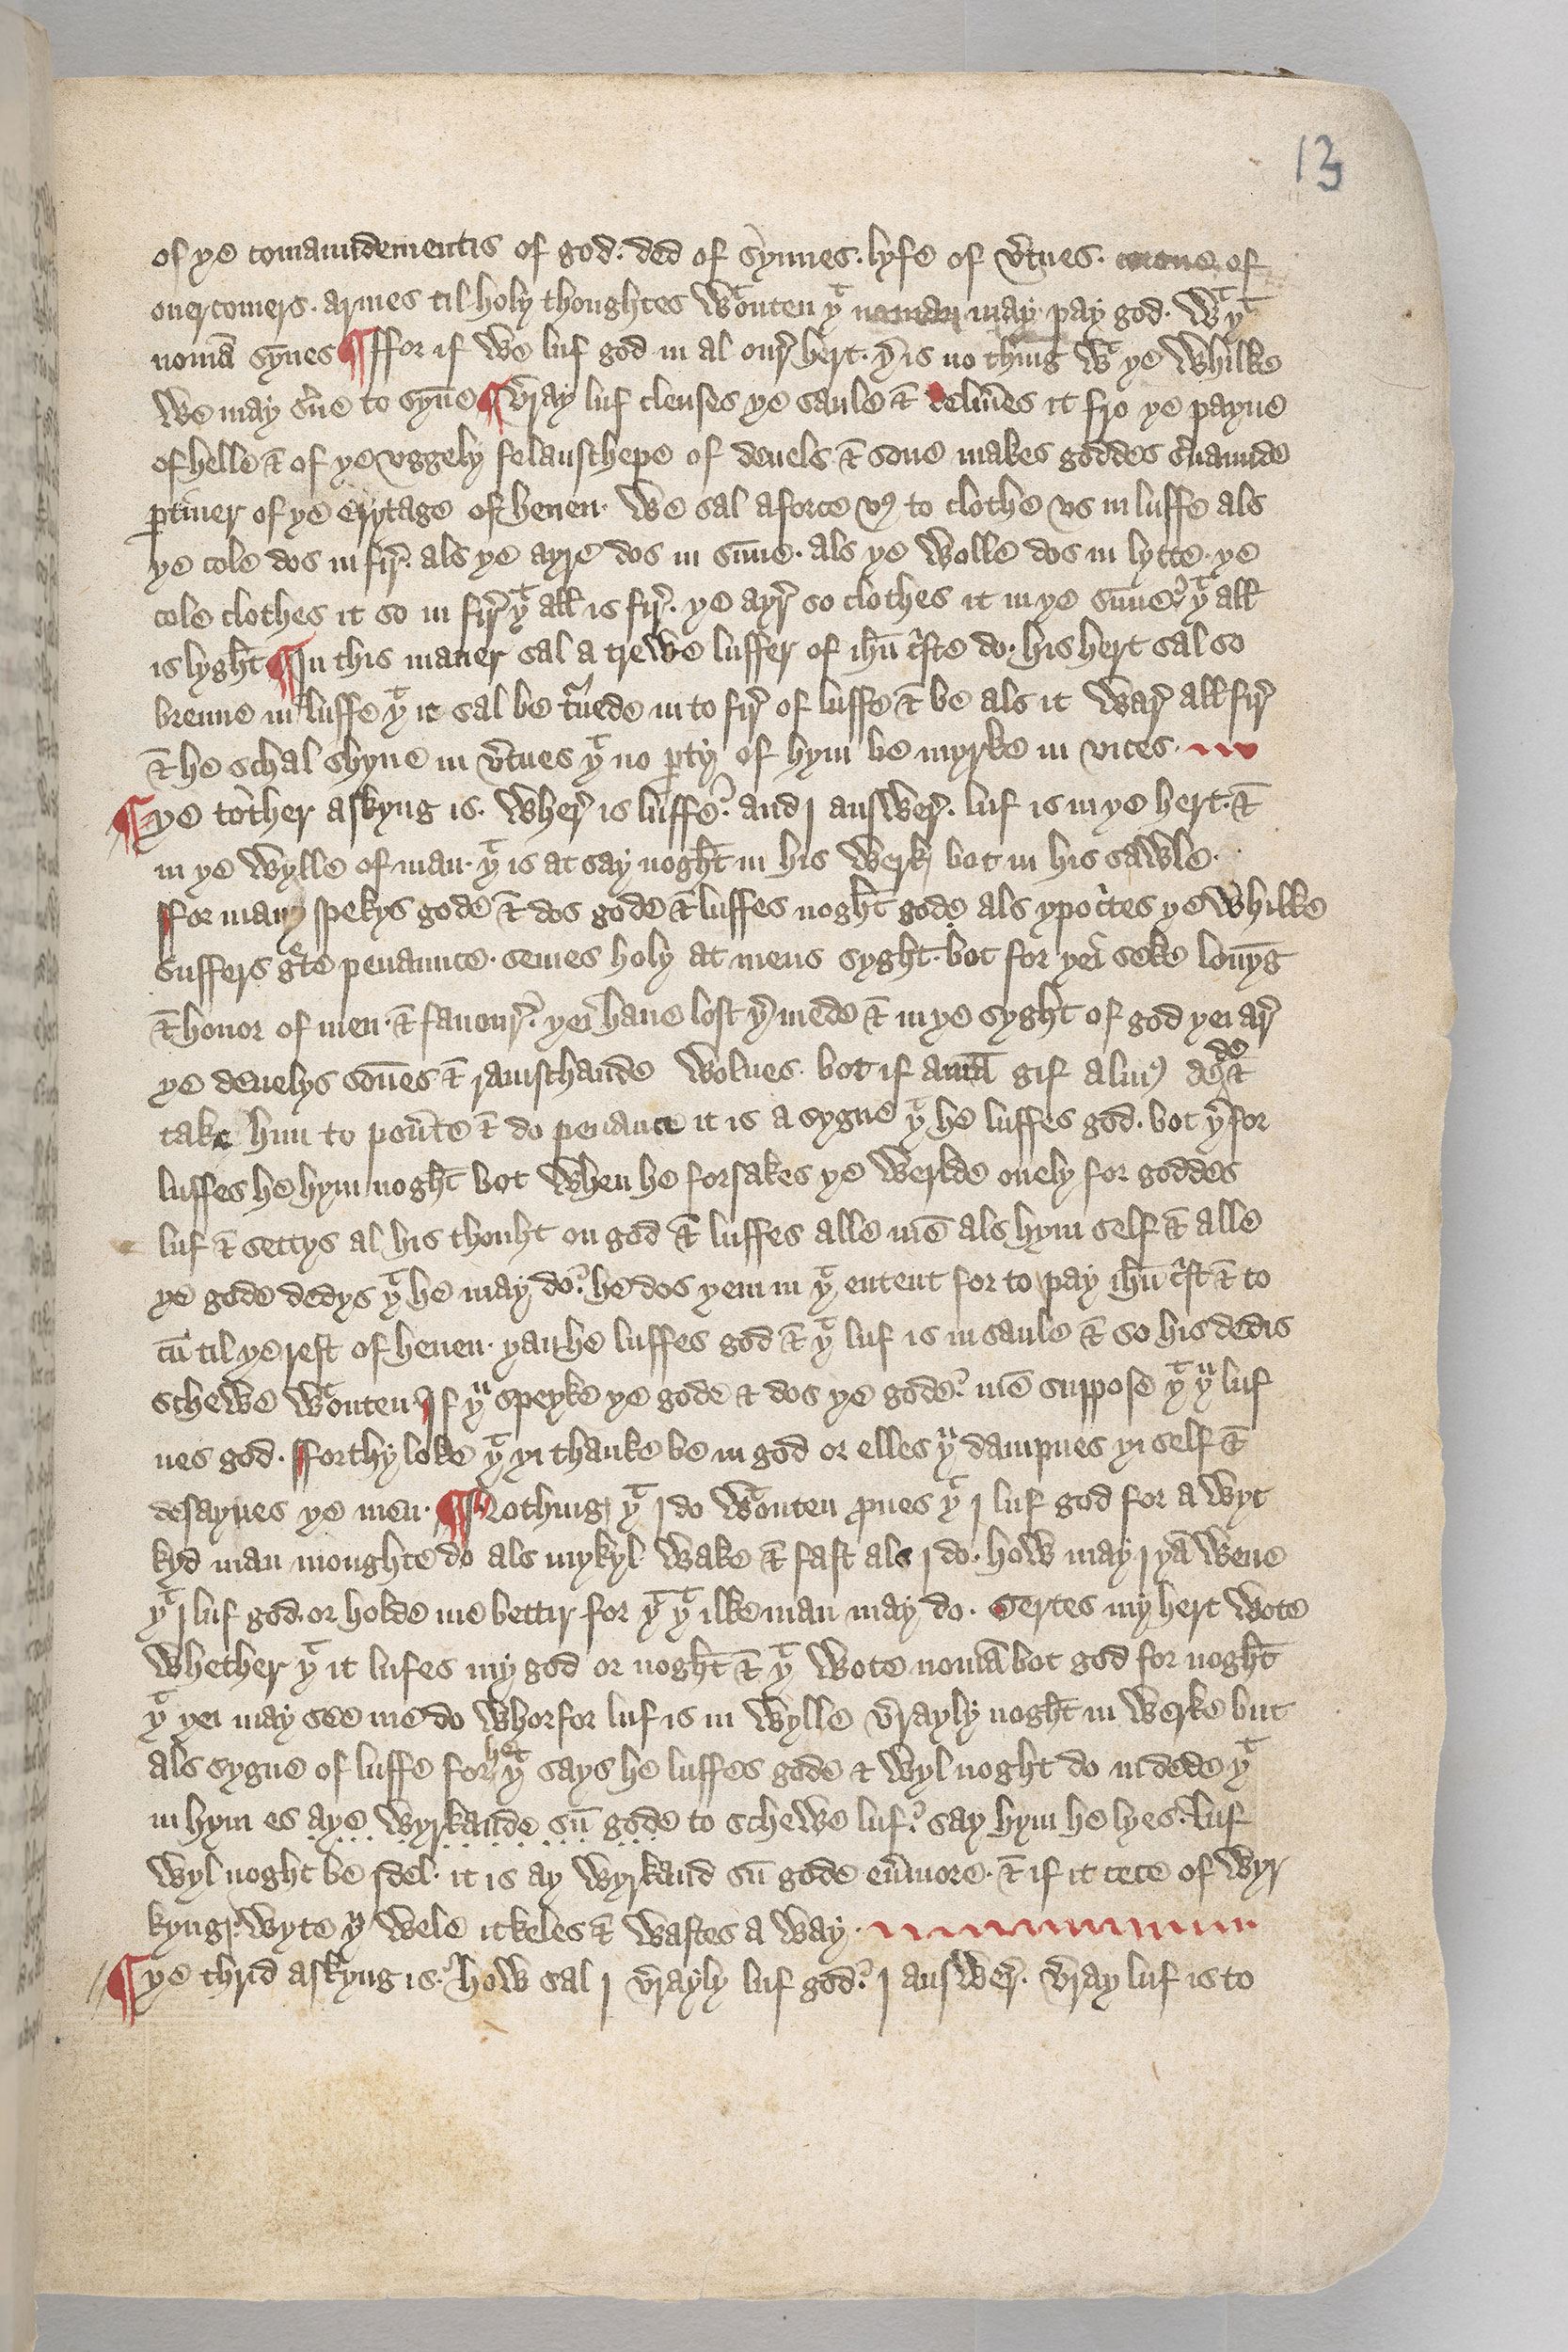 13
of ye comaundementis of god. ded of synnes. lyfe of v̾tues. corone of
ouercomers. armes til holy thoughtes wᵗouten yᵗ noman may pay god. wᵗ yᵗ
nomā synes ¶ ffor if we luf god in al our̾ hert. y̾ is no thing wᵗ ye whilke
we may s̾ue to syne ¶ v̾ray luf clenses ye saule & deliu̾es it fro ye payne
of helle & of ye vggely felauschepe of deuels. & sone makes goddes s̾uaunde
ptiner of ye erytage of heuen. We sal aforce vs to clothe vs in luffe als
ye cole dos in fir̾. als ye ayre dos in sūne. als ye wolle dos in lytte. ye
cole clothes it so in fir̾ yᵗ all is fir̾. ye ayr̾ so clothes it in ye sūne yᵗ all
is lyght ¶ In this maner sal a trewe luffer of ihū c̾ste do. his hert sal so
brenne in luffe yᵗ it sal be t̾nede in to fir̾ of luffe & be als it war̾ all fir̾
& he schal shyne in v̾tues yᵗ no pty of hym be myrke in vices.
¶ ye tother askyng is. Wher̾ is luffe? and I answer̾. luf is in ye hert. &
in ye wylle of man. yᵗ is at say noght in his werk bot in his sawle.
ffor many spekys gode & dos gode & luffes noght gode als ypoc̾tes ye whilke
suffers g̾te penaunce. semes holy at mens syght. bot for yei seke louyg̅
& honor of men. & fauour̾. yei haue lost y̾ mede & in ye syght of god yei ar̾
ye deuelys sōnes & rauischande wolues. bot if a mā gif almus dede &
take him to pou̾te & do penance it is a sygne yᵗ he luffes god. bot y̾for
luffes he hym noght bot when he forsakes ye werlde onely for goddes
luf & settys al his thouht on god & luffes alle mē als hym self & alle
ye gode dedys yᵗ he may do. he dos yem in yᵗ entent for to pay ihū c̾st & to
cū til ye rest of heuen. yan he luffes god & yᵗ luf is in saule & so his dedis
schewe wᵗouten If yᵘ speyke ye gode & dos ye gode. mē suppose yᵗ yᵘ luf
ues god. fforthy loke yᵗ yi thanke be in god or elles yᵘ dampnes yi self &
desayues ye men. ¶ Nothing yᵗ I do wᵗouten p̾ues yᵗ I luf god for a wyc
kyd man moughte do als mykyl wake & fast als I do. how may I yā wene
yᵗ I luf god. or holde me bettir for yᵗ yᵗ ilke man may do. Sertes my hert wote
whether yᵗ it lufes my god or noght & yᵗ wote nomā bot god for noght
yᵗ yei may see me do Whorfor luf is in wylle v̾rayly noght in werke but
als sygne of luffe for he yᵗ says he luffes gode & wyl noght do in dede yᵗ
in hym es aye wyrkande sū gode to schewe luf. say hym he lyes. luf
wyl noght be ydel. it is ay wyrkand sū gode eu̾more. & if it cece of wyr
kyng. wyte yᵘ wele it keles & wastes a way.
¶ ye thrid askyng is. how sal I v̾rayly luf god. I answer̾. v̾ray luf is to